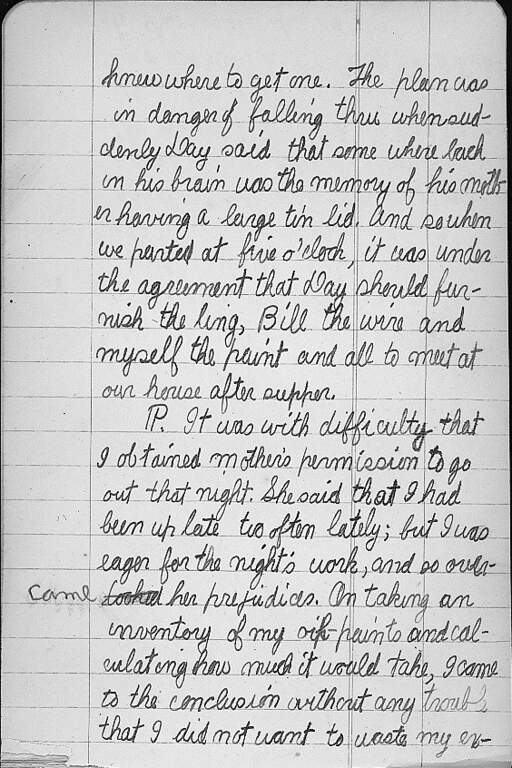 knew where to get one. The plan was
in danger of falling thru when sud-
denly Day said that some where back
in his brain was the memory of his moth
er having a large tin lid. And so when
we parted at five o'clock, it was under
the agreement that Day should fur-
nish the ling, Bill the wire and
myself the paint and all to meet at
our house after supper.
P. It was with difficulty that
I obtained mother's permission to go
out that night. She said that I had
been up late too often lately; but I was
eager for the night's work, and so over-
came her prejudices. On taking an
inventory of my paints and cal-
culating how much it would take, I came
to the conclusion without any trouble
that I did not want to waste my en-